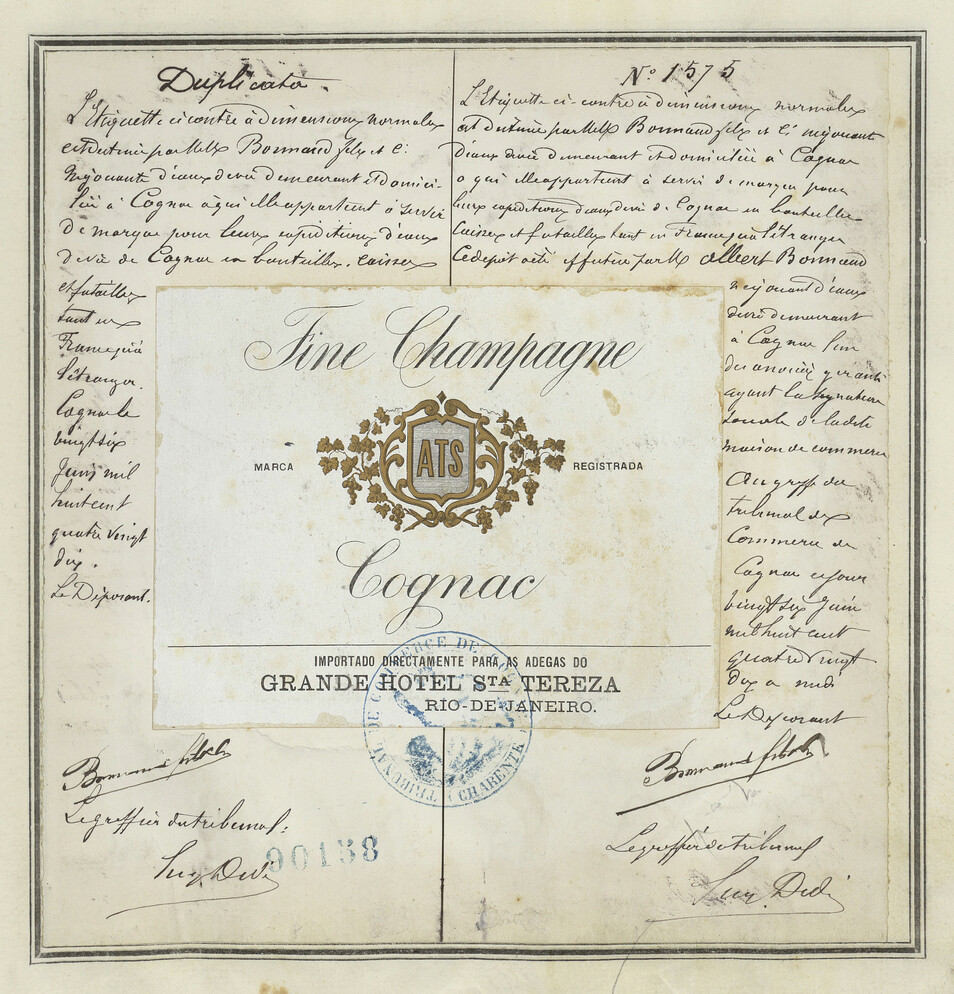 Duplicata.
L'Etiquette ci contre à dimensions normales
est destinée par MM Bonniaud fils et Cie
négociants d'eaux de vie demeurant et domici-
liés à Cognac à qui elle appartient à servir
de marque pour leurs expéditions d'eaux
de vie de Cognac en bouteilles. caisses
et futailles
tant en
France qu'à
l'étranger.
Cognac le
vingt six
Juin mil
huit cent
quatre vingt
dix.
Le Déposant.
Le greffier du tribunal:
90158
No 1575
L'Etiquette ci-contre à dimensions normales
est destinée par MM Bonniaud fils et Cie négociants
d'eaux de vie demeurant et domiciliés à Cognac
à qui elle appartient à servir de marque pour
leurs expéditions d'eaux de vie de Cognac en bouteilles
caisses et futailles tant en France qu'à l'étranger
Ce dépôt a été effectué par M Albert Bonniaud
négociant d'eaux
de vie demeurant
à Cognac l'un
des associés gérants
ayant la signature
sociale de la dite
maison de commerce
Au greffe du
Tribunal de
Commerce de
Cognac ce jour
vingt six Juin
mil huit cent
quatre vingt
dix à midi
Le Déposant
Le greffier du tribunal
Fine Champagne
MARCA ATS REGISTRADA
Cognac
IMPORTADO DIRECTAMENTE PARA AS ADEGAS DO
GRANDE HOTEL STA TEREZA
RIO-DE-JANEIRO.
TRIBUNAL DE COMMERCE DE COGNAC
CHARENTE